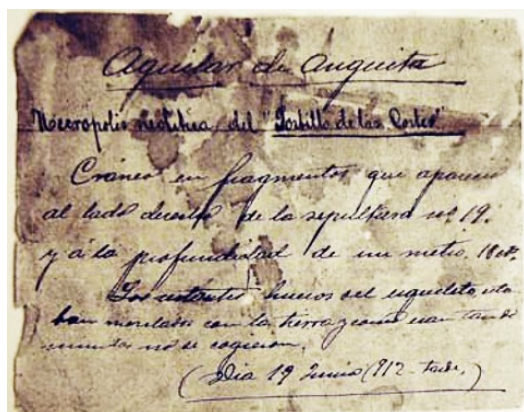 Aguilar de Anguita
Necrópolis neolítica del "Portillo de las Cortes"
Cráneo en fragmentos que apareció
al lado derecho de la sepultura nº 19.
y á la profundidad de un metro, 18 cm.
Los restantes huesos del esqueleto, esta
ban mezclados con la tierra y como eran tan
menudos no se cogieron.
(Dia 19 Junio 1912 - tarde.)